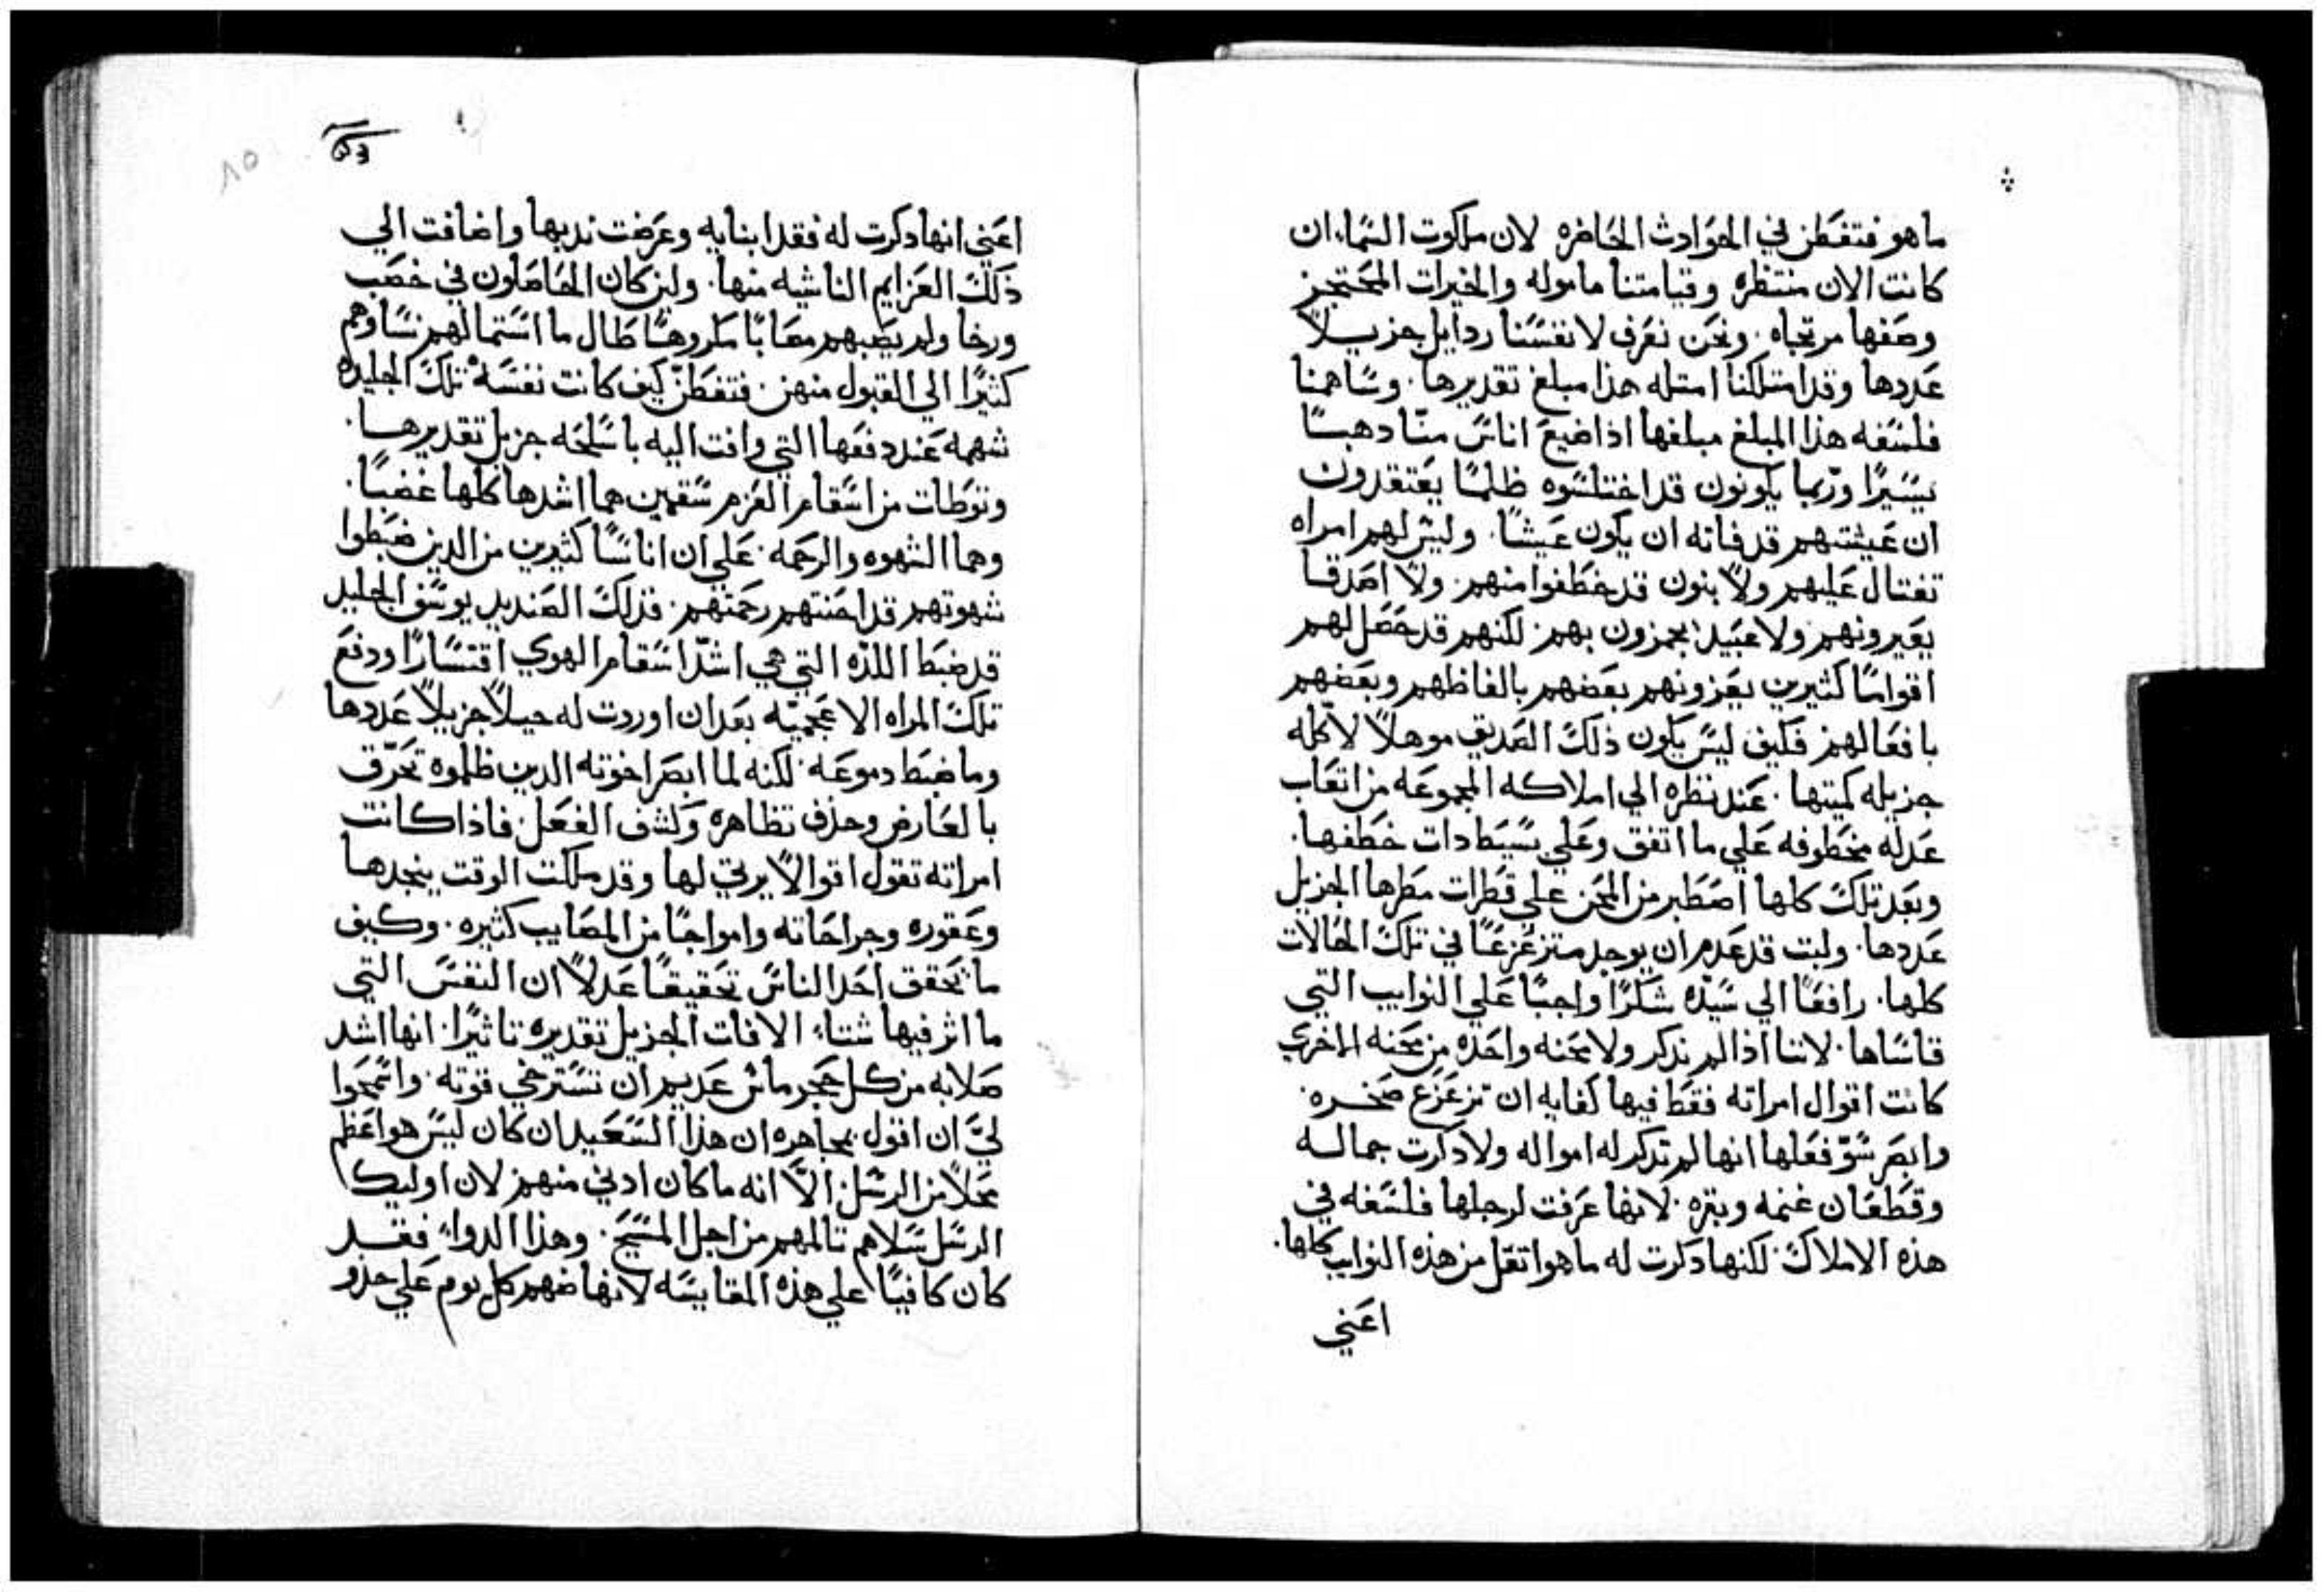 ما هو فتفطن في الحوادث الحاضره لان ملكوت السماء ان
كانت الان منتظره وقيامتنا ماموله والخيرات المحتجز
وصفها مرتجاه ونحن نعرف لانفسنا ردايل جزيلاً
عددها وقد امتلكنا امتله هذا مبلغ تقديرها. وساهمنا
فلسفه هذا المبلغ مبلغها اذا ضيع اناس منّا دهبًا
يسيرًا وربّما يكونون قد اختلسوه ظلمًا يعتقدون
ان عيشتهم قد فاته ان يكون عيشًا. وليس لهم امراه
تغتال عليهم ولا بنون قد خطفوا منهم. ولا اصدقا
يعيرونهم ولا عبيد يجمزون بهم. لكنهم قد حصل لهم
اقوامًا كثيرين يعزونهم بعضهم بالفاظهم وبعضهم
بافعالهم فكيف ليس يكون ذلك الصديق موهلاً لاكله
جزيله كميتها. عند نظره الي املاكه المجموعه من اتعاب
عدله مخطوفه علي ما اتفق وعلي بسيط دات خطفها.
وبعد تلك كلها اصطبر من المحن علي قطرات مطرها الجزيل
عددها. ولبت قد عدم ان يوجد متزعزعًا في تلك الحالات
كلها. رافعًا الي سيّده شكرًا واجبًا علي النوايب التي
قاساها. لاننا اذا لم ندكر ولا محنه واحده من محنه الاخري
كانت اقوال امراته فقط فيها كفايه ان تزعزع صخره.
وابصر سوّ فعلها انها لم تدكر له امواله ولا دكرت جماله
وقطعان غنمه وبقره. لانها عرفت لرجلها فلسفه في
هذه الاملاك. لكنها دكرت له ما هو اتقل من هذه النوايب كلها.
اعني
اعني انها دكرت له فقد ابنايه وعرضت ندبها واضافت الي
ذلك العزايم الناشيه منها. ولين كان الحاصلون في خصب
ورخا ولم يصبهم مصابًا مكروهًا طال ما استمالهم نساوهم
كثيرًا الي القبول منهن. فتفطنّ كيف كانت نفسه تلك الجليده
شهمه عند دفعها التي وافت اليه باسلحه جزيل تقديرها.
وتوطات من اسقام العزم سقمين هما اشدها كلها غضبًا.
وهما الشهوه والرحمه. علي ان اناسًا كثيرين من الدين ضبطوا
شهوتهم قد احنتهم رحمتهم. فذلك الصنديد يوسف الجليد
قد ضبط اللذه التي هي اشدّ اسقام الهوي اقتسارًا ودفع
تلك المراه الاعجميّه بعد ان اوردت له حيلاً جزيلاً عددها
وما ضبط دموعه. لكنه لما ابصر اخوته الدين ظلموه تحرّق
بالعارض وحذف تظاهره وكشف الفعل. فاذا كانت
امراته تقول اقوالاً يرتي لها وقد ملكت الوقت ينجدها
وعقوره وجراحاته وامواجًا من المصايب كثيره. وكيف
ما تحقق احد الناس تحقيقًا عدلاً ان النفس التي
ما اثر فيها شتاء الافات الجزيل تقديره تاثيرًا. انها اشد
صلابه من كل حجر ماس عديم ان تسترخي قوته. واسمحوا
ليّ ان اقول بمجاهره ان هذا السعيد ان كان ليس هو اعظم
محلاً من الرسل. الاّ انه ما كان ادني منهم لان اوليك
الرسل سلاهم تالمهم من اجل المسيح. وهذا الدواء فقد
كان كافيًا علي هذه المقايسه لانهاضهم كل يوم علي حذو